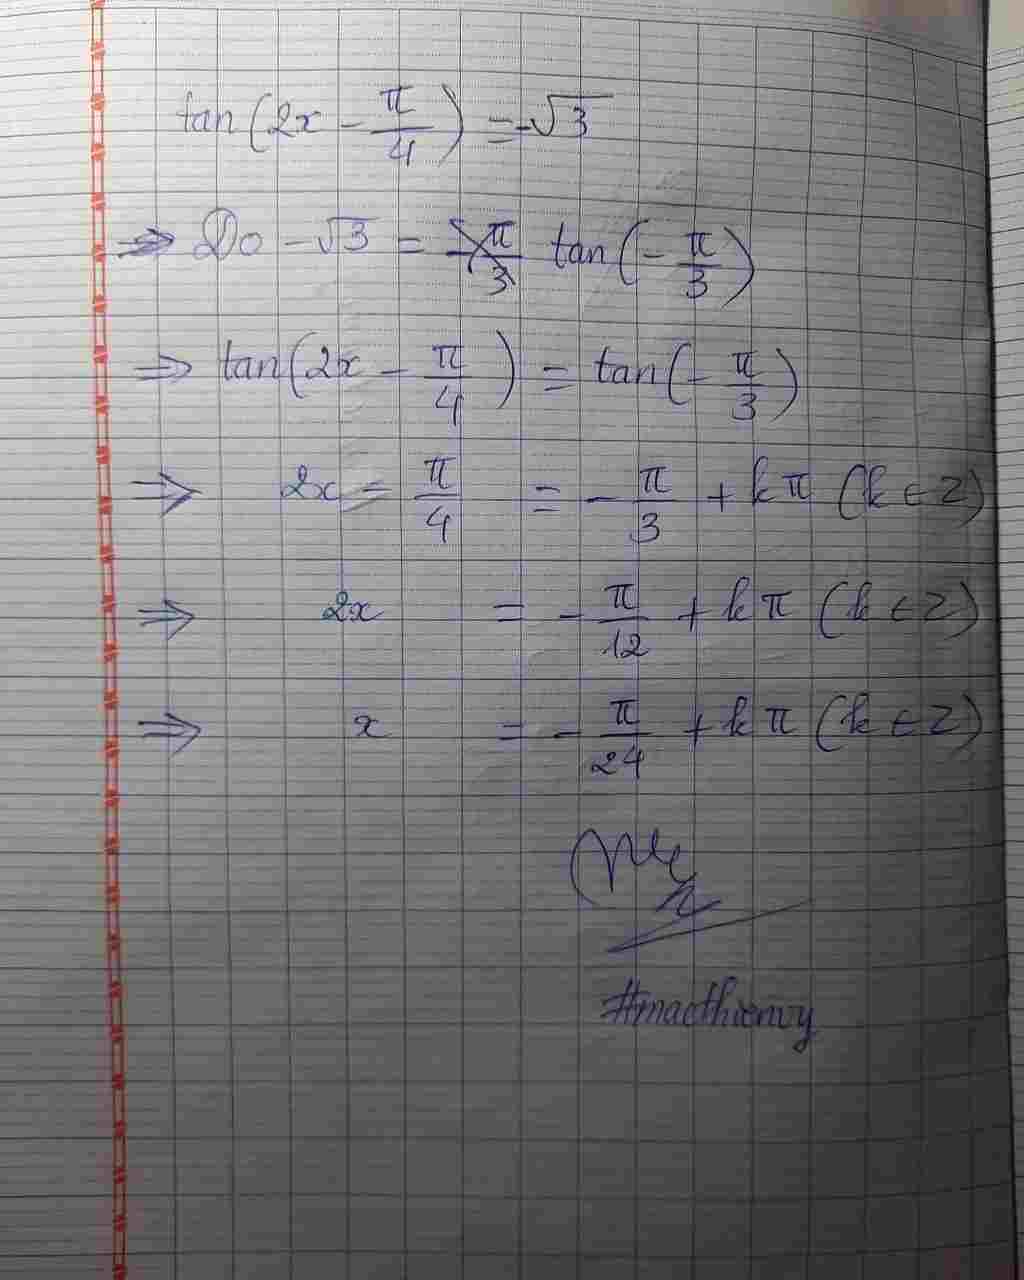 tan(2x - π/4) = -√3
=> Do -√3 = tan(-π/3)
=> tan(2x - π/4) = tan(-π/3)
=> 2x - π/4 = -π/3 + kπ (k ∈ Z)
=> 2x = -π/12 + kπ (k ∈ Z)
=> x = -π/24 + kπ (k ∈ Z)